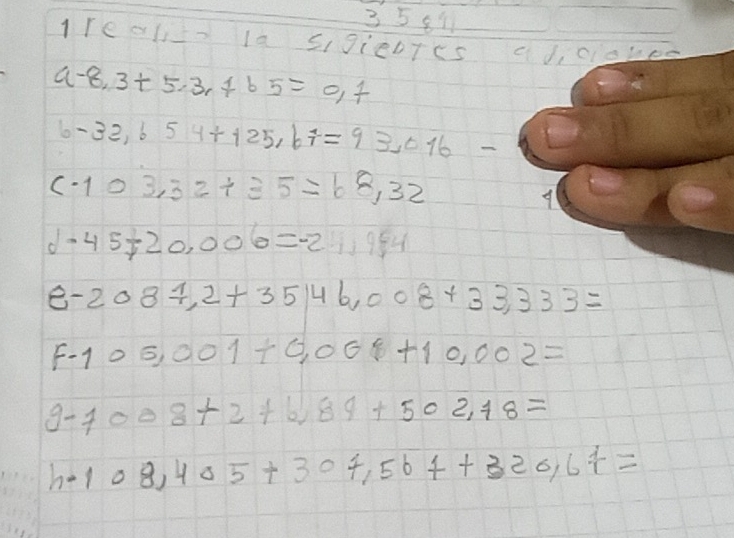 3584
1 realiza la sigientes adiciones
a-8,3+5.3,765=0,7
b-32,654+125,67=93,016 -
c-103,32+35=68,32
d-45+20,006=-24,994
e-2087,2+35146,008+33,333=
F-105,001+0,001+10,002=
g-7008+276,89+502,78=
h-108,405+307,567+320,67=